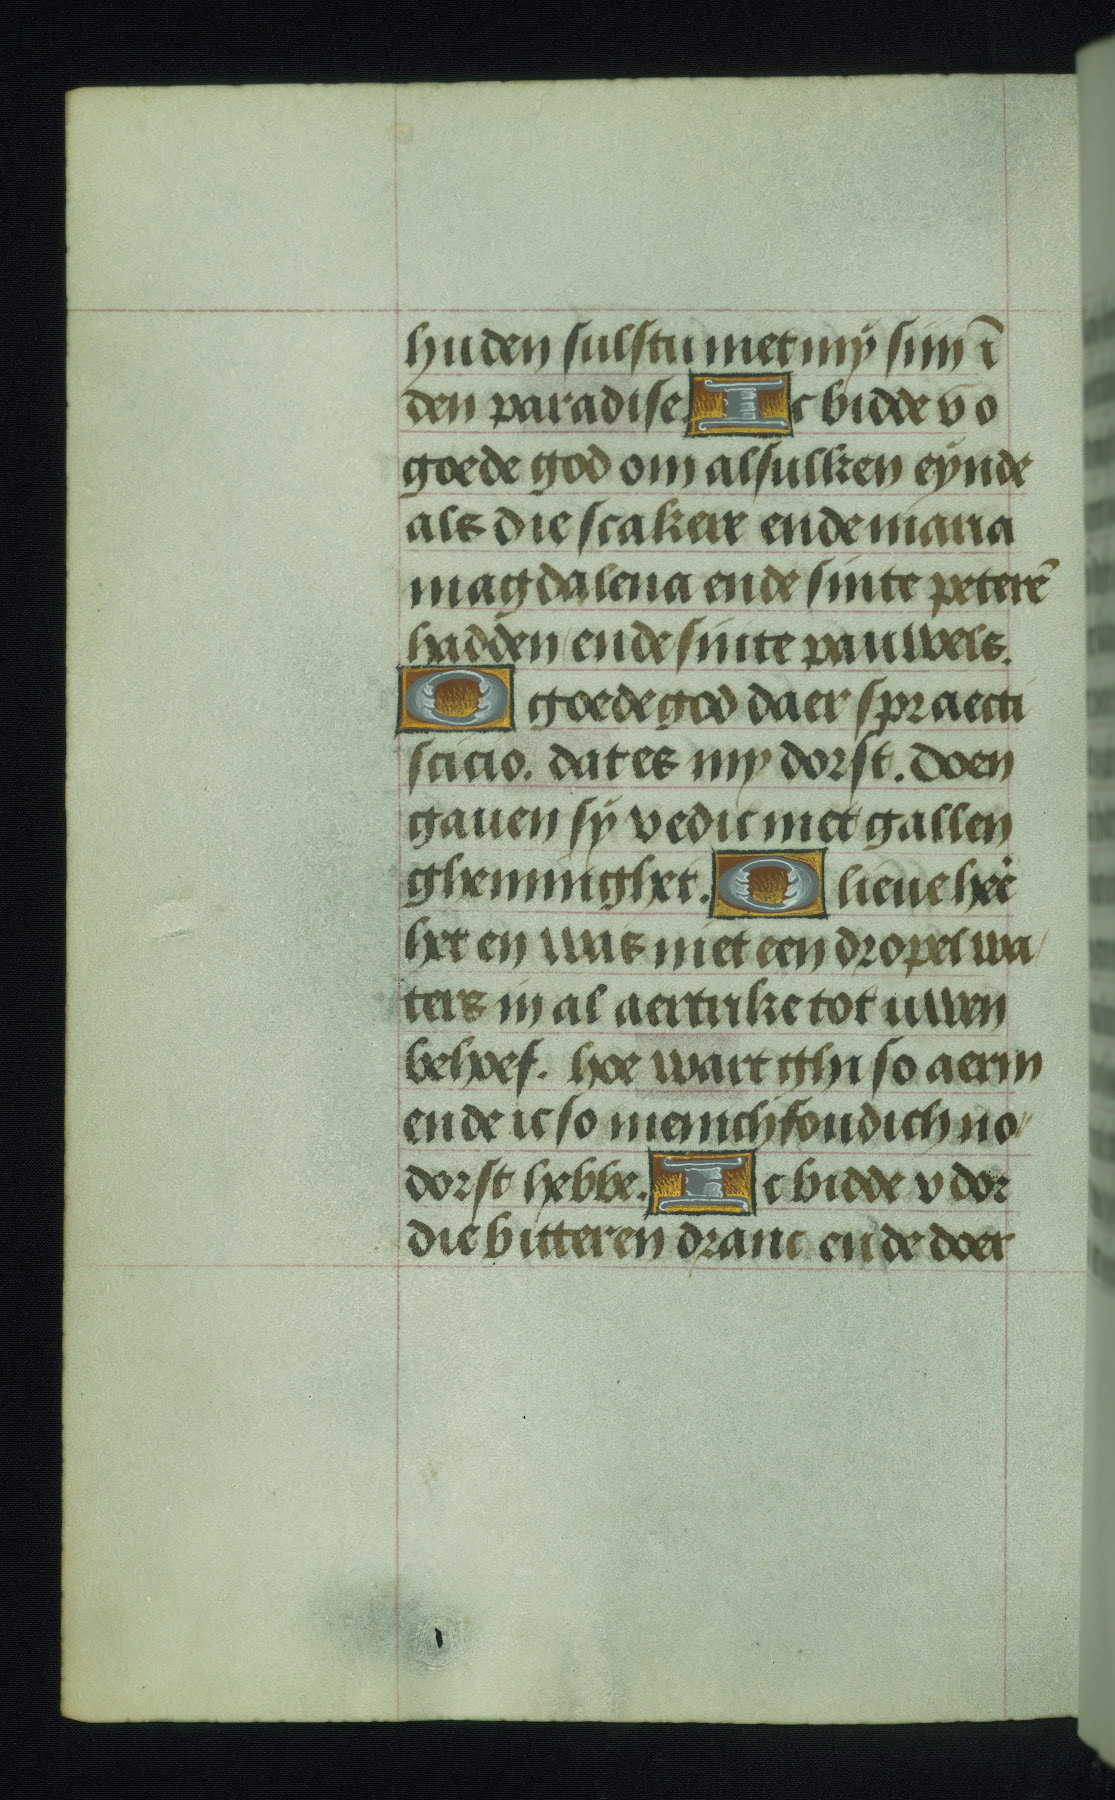 huden sulstu met mÿ siin ī
den paradise. Ic bidde v̄ o
goede god om alsulken eÿnde
als die scakere ende maria
magdalena ende sinte peterē
hadden ende sinte pauwels.
O goede god daer spraecti
scicio. dat es my dorst. Doen
gauen sÿ v edic met gallen
gheminghet. O lieue heē
het en was niet een dropel wa/
ters in al aertrike tot uwen
behoef. hoe waert ghi so aerm
ende ic so menichfoudich no/
dorst hebbe. Ic bidde v dor
die bitteren dranc ende doer